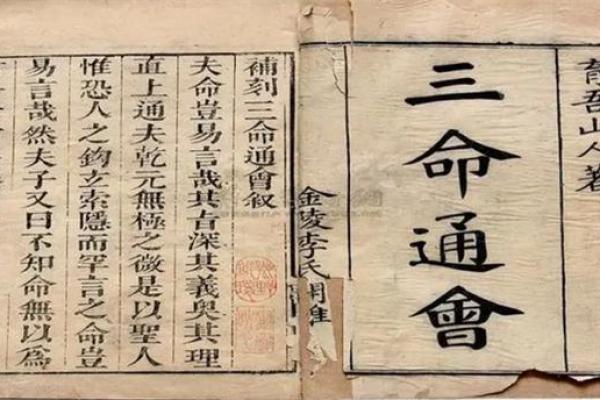 育吾山人著
三命通會
金陵李氏
補刻三命通會叙
夫命豈易言哉其旨深其義奥其理
直上通夫乾元無極之微是以聖人
惟恐人之鈎玄索隱而罕言之命豈
易言哉然夫子又曰不知命無以為